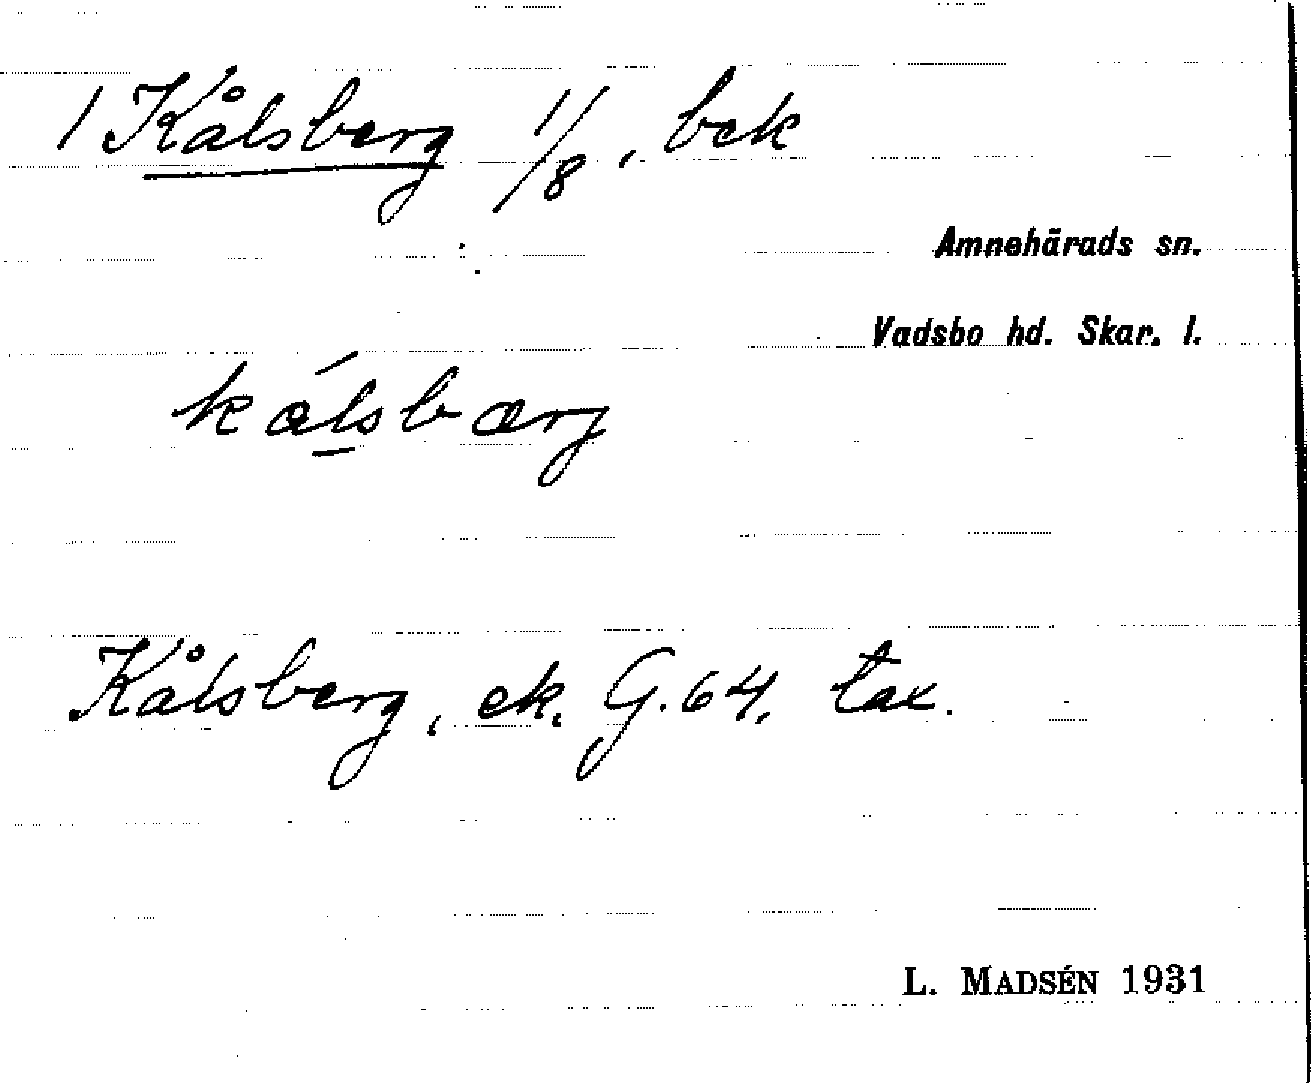 1 Kålsberg 1/8, bek
Amnehärads sn.
Vadsbo hd. Skar. l.
kálsbærg
Kålsberg, ek. G. 64, tax.
L. MADSÉN 1931